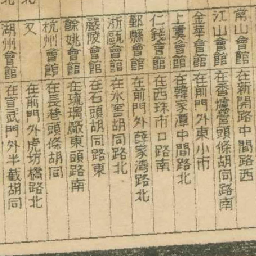 常山會館 在新開路中間路西
江山會館 在香爐營頭條胡同路南
金華會館 在前門外東小市
上虞會館 在韓家潭中間路北
仁錢會館 在西珠市口路南
鄞縣會館 在前門外薛家灣路北
浙甌會館 在水窖胡同路北
嚴陵會館 在石頭胡同路東
餘姚會館 在琉璃廠東頭路南
杭州會館 在長巷頭條胡同
又 在前門外虎坊橋路北
湖州會館 在宣武門外半截胡同